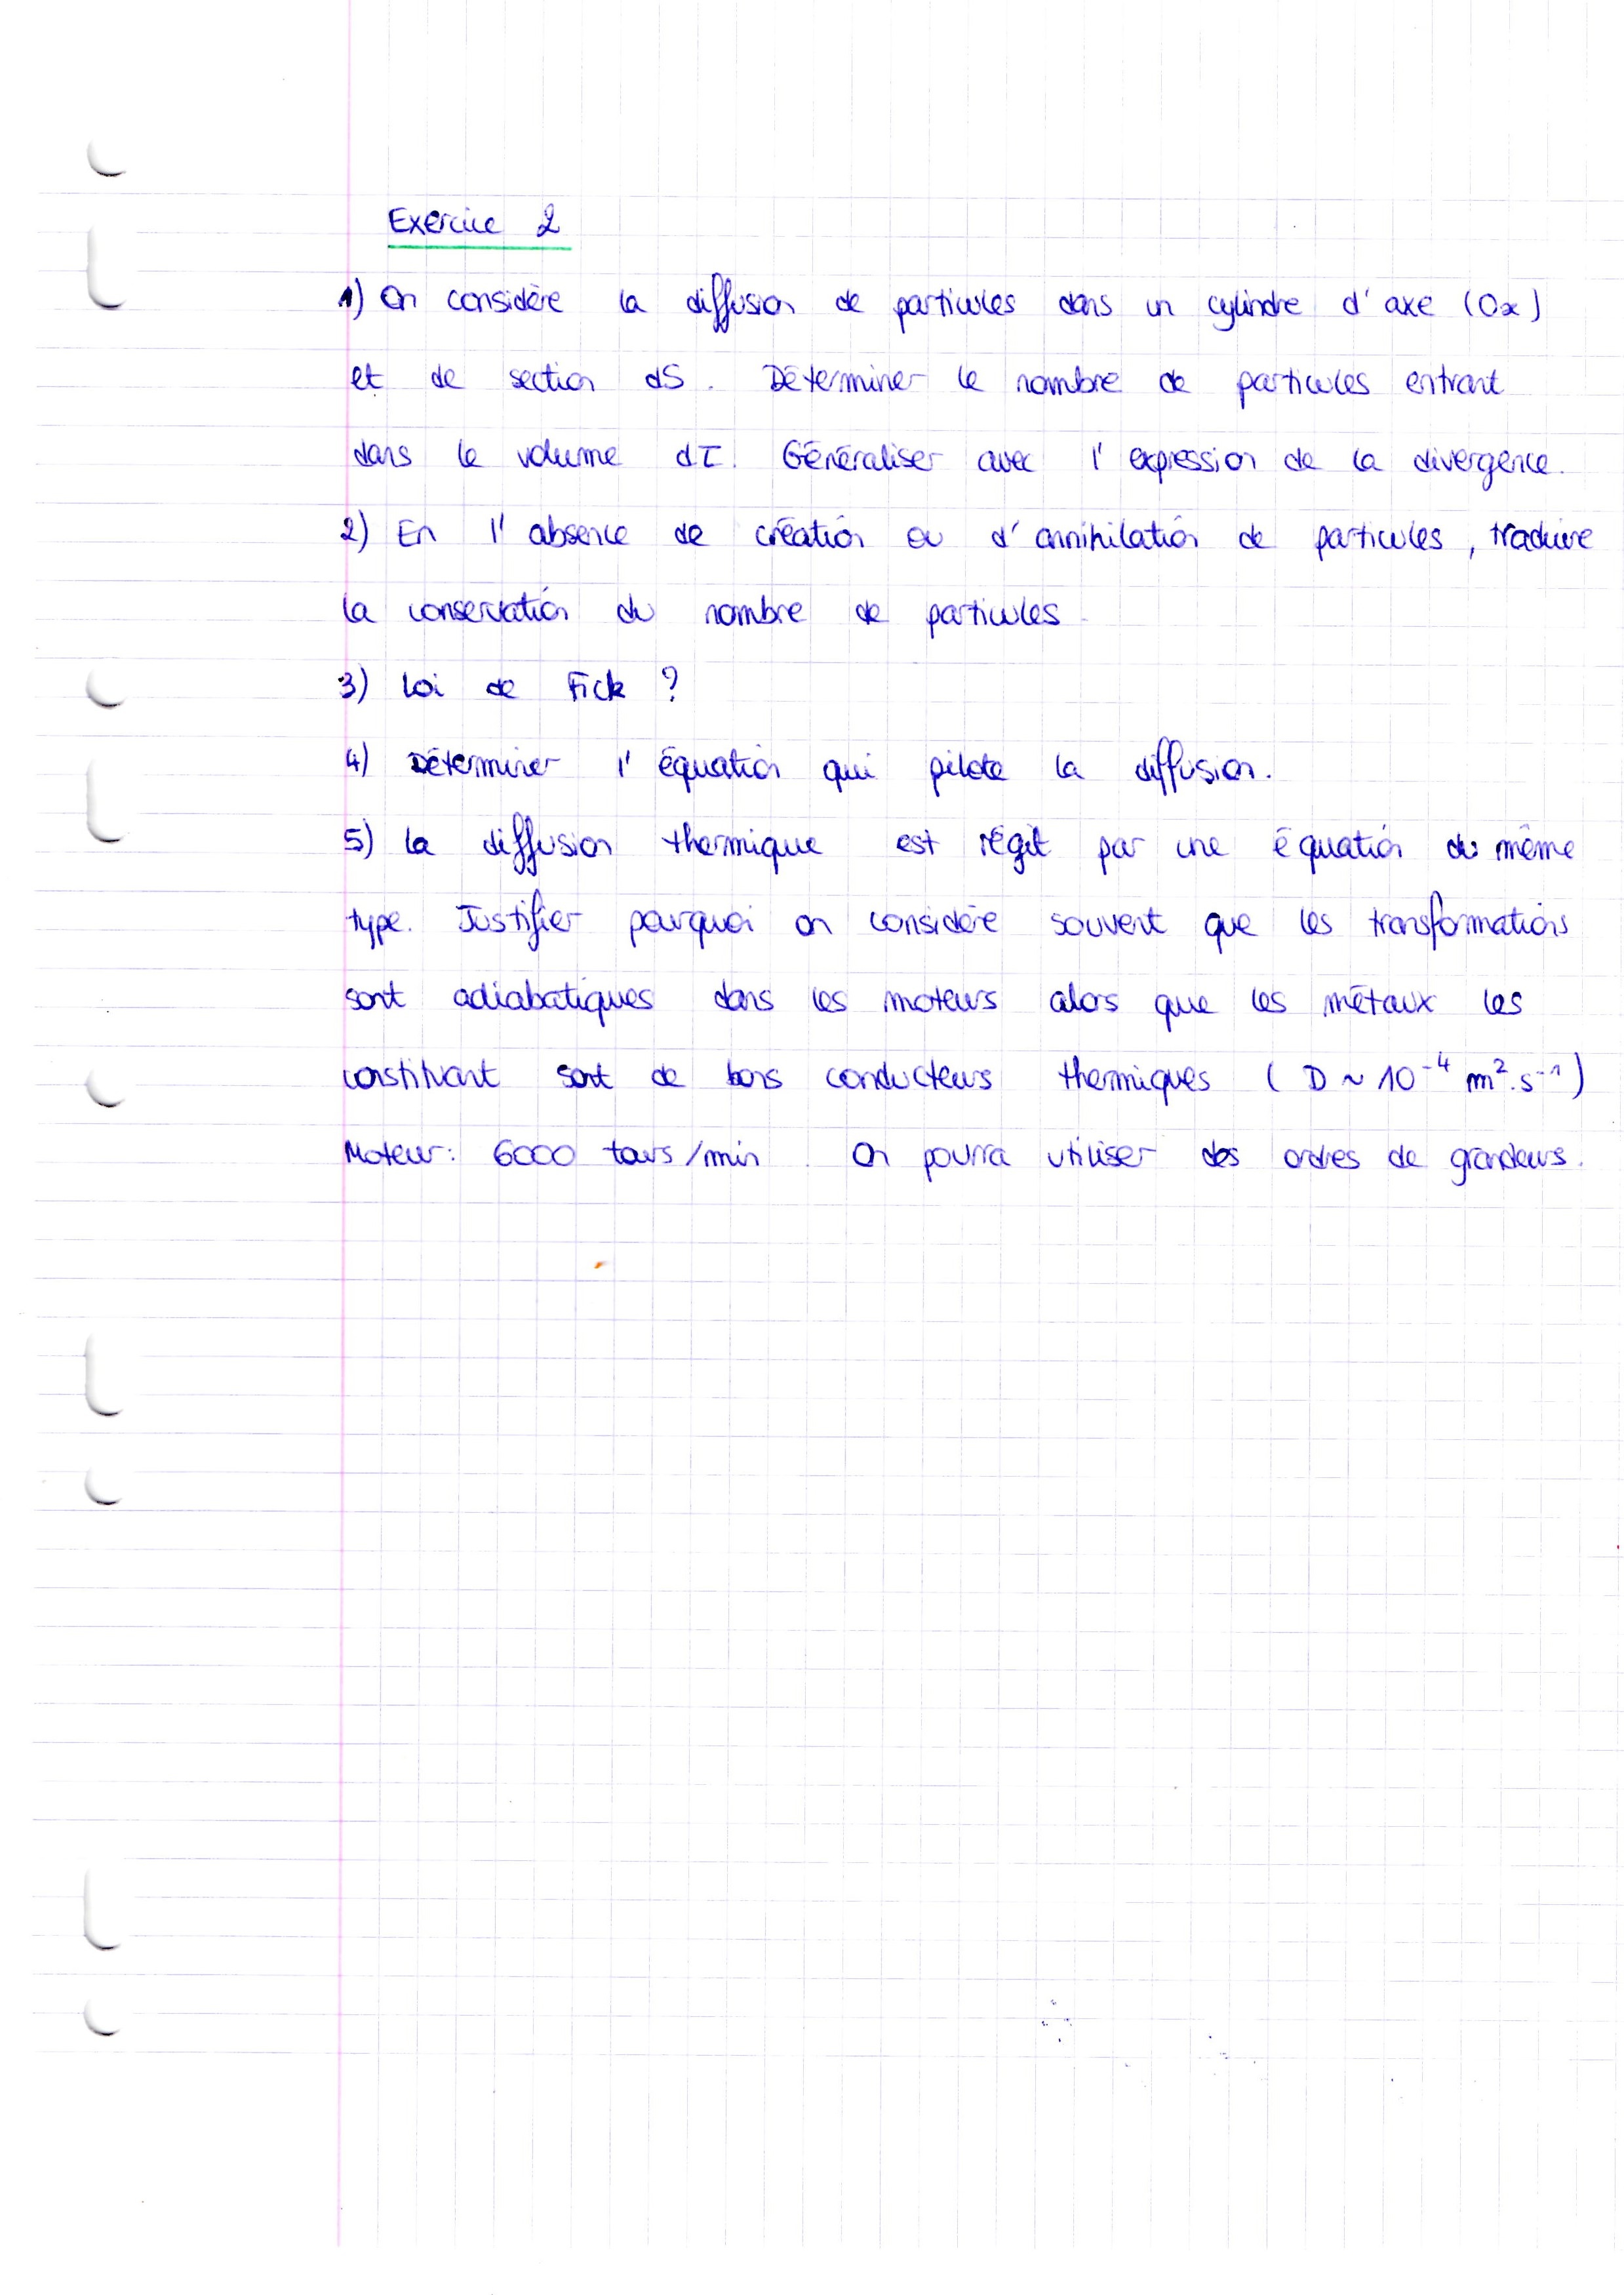 Exercice 2
1) On considère la diffusion de particules dans un cylindre d'axe (Ox)
et de section dS. Déterminer le nombre de particules entrant
dans le volume dτ. Généraliser avec l'expression de la divergence.
2) En l'absence de création ou d'annihilation de particules, traduire
la conservation du nombre de particules.
3) Loi de Fick ?
4) Déterminer l'équation qui pilote la diffusion.
5) La diffusion thermique est régit par une équation du même
type. Justifier pourquoi on considère souvent que les transformations
sont adiabatiques dans les moteurs alors que les métaux les
constituant sont de bons conducteurs thermiques (D ~ 10⁻⁴ m².s⁻¹)
Moteur: 6000 tours/min. On pourra utiliser des ordres de grandeurs.